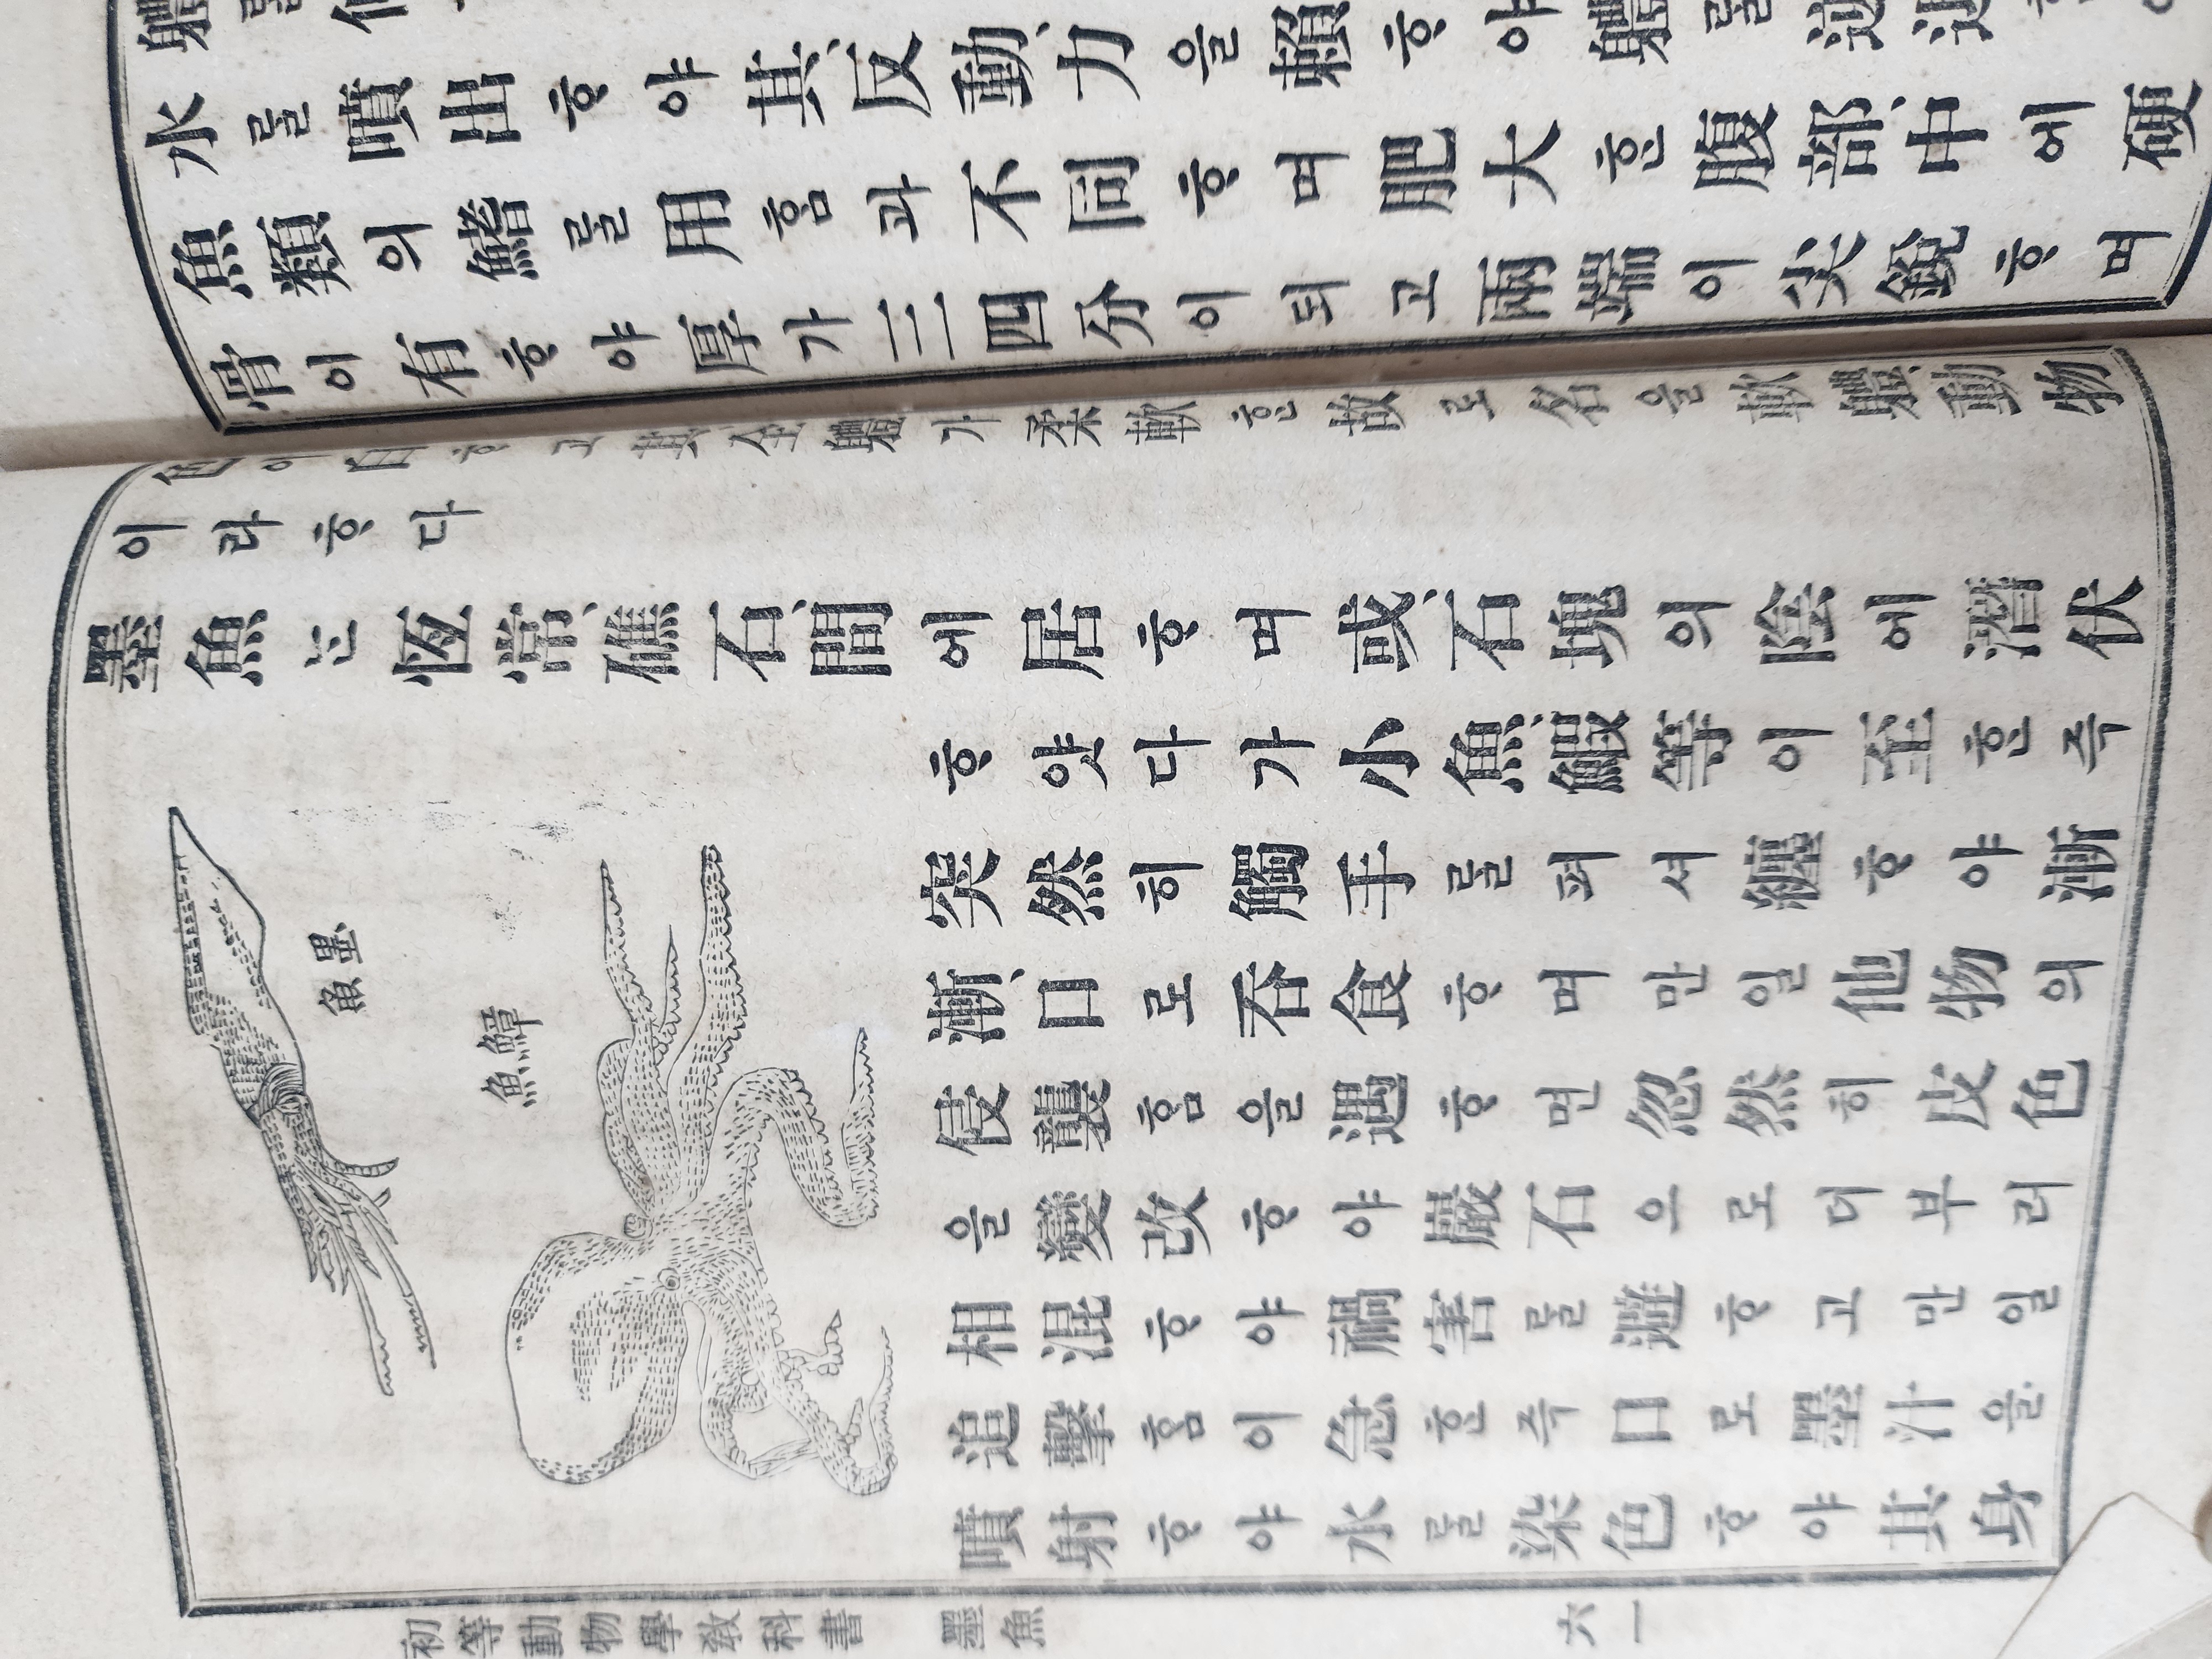 水를噴出ᄒᆞ야其反動力을賴ᄒᆞ야軆를
魚類의鰭를用ᄒᆞᆷ과不同ᄒᆞ며肥大ᄒᆞᆫ腹部中에硬
骨이有ᄒᆞ야厚가三四分이되고兩端이尖銳ᄒᆞ며
色이白ᄒᆞ고其全軆가柔軟ᄒᆞᆫ故로名을軟軆動物
이라ᄒᆞ다
墨魚ᄂᆞᆫ恆常礁石間에居ᄒᆞ며或石塊의陰에潛伏
ᄒᆞ얏다가小魚鰕等이至ᄒᆞᆫ즉
突然히觸手를펴셔纏ᄒᆞ야漸
漸口로呑食ᄒᆞ며만일他物의
侵襲ᄒᆞᆷ을遇ᄒᆞ면忽然히皮色
을變改ᄒᆞ야巖石으로더부러
相混ᄒᆞ야禍害를避ᄒᆞ고만일
追擊ᄒᆞᆷ이急ᄒᆞᆫ즉口로墨汁을
噴射ᄒᆞ야水를染色ᄒᆞ야其身
墨魚
鱆魚
初等動物學敎科書 墨魚 六一